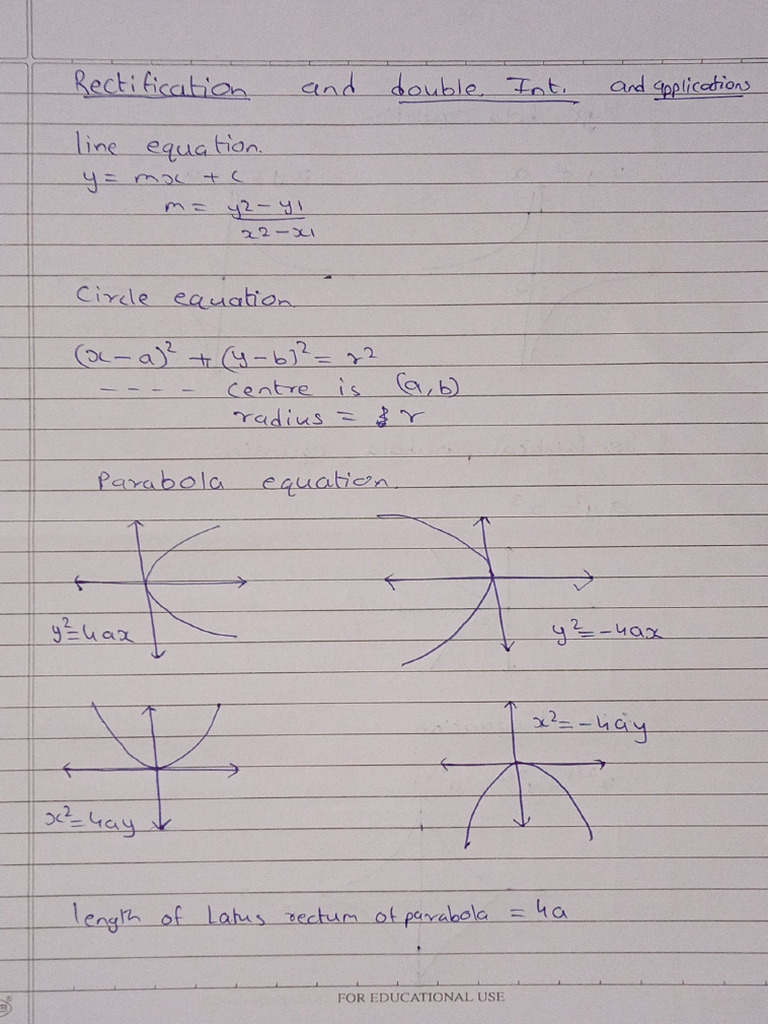 Rectification and double Int. and applications
line equation.
y = mx + c
m = y2 - y1
x2 - x1
Circle equation
(x - a)² + (y - b)² = r²
---- centre is (a, b)
radius = r
Parabola equation.
y² = 4ax
y² = -4ax
x² = -4ay
x² = 4ay
length of Latus rectum of parabola = 4a
FOR EDUCATIONAL USE